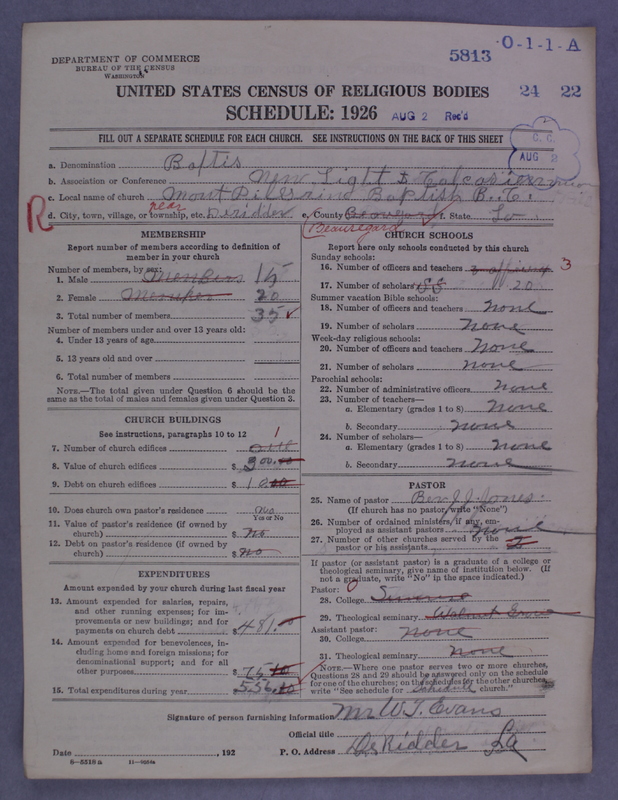 DEPARTMENT OF COMMERCE
BUREAU OF THE CENSUS
WASHINGTON
5813 O-1-1-A
UNITED STATES CENSUS OF RELIGIOUS BODIES 24 22
SCHEDULE: 1926 AUG 2 Rec'd
FILL OUT A SEPARATE SCHEDULE FOR EACH CHURCH. SEE INSTRUCTIONS ON THE BACK OF THIS SHEET
C. C.
AUG 2
a. Denomination Baptis
b. Association or Conference New Light
c. Local name of church Baptist
R d. City, town, village, or township, etc. near Deridder e. County Beauregard f. State La
MEMBERSHIP
Report number of members according to definition of
member in your church
Number of members, by sex:
1. Male Members 15
2. Female 20
3. Total number of members 35
Number of members under and over 13 years old:
4. Under 13 years of age
5. 13 years old and over
6. Total number of members
NOTE.—The total given under Question 6 should be the
same as the total of males and females given under Question 3.
CHURCH BUILDINGS
See instructions, paragraphs 10 to 12
7. Number of church edifices 1
8. Value of church edifices $300.00
9. Debt on church edifices $10.00
10. Does church own pastor's residence No
Yes or No
11. Value of pastor's residence (if owned by
church) $ No
12. Debt on pastor's residence (if owned by
church) $ No
EXPENDITURES
Amount expended by church during last fiscal year
13. Amount expended for salaries, repairs,
and other running expenses; for im-
provements or new buildings; and for
payments on church debt $481.
14. Amount expended for benevolences, in-
cluding home and foreign missions; for
denominational support; and for all
other purposes $75
15. Total expenditures during year $556
CHURCH SCHOOLS
Report here only schools conducted by this church
Sunday schools:
16. Number of officers and teachers 3
17. Number of scholars 20
Summer vacation Bible schools:
18. Number of officers and teachers none
19. Number of scholars none
Week-day religious schools:
20. Number of officers and teachers none
21. Number of scholars none
Parochial schools:
22. Number of administrative officers none
23. Number of teachers—
a. Elementary (grades 1 to 8) none
b. Secondary none
24. Number of scholars—
a. Elementary (grades 1 to 8) none
b. Secondary none
PASTOR
25. Name of pastor J. J. Jones
(If church has no pastor, write "None")
26. Number of ordained ministers, if any, em-
ployed as assistant pastors none
27. Number of other churches served by the
pastor or his assistants
If pastor (or assistant pastor) is a graduate of a college or
theological seminary, give name of institution below. (If
not a graduate, write "No" in the space indicated.)
Pastor: 0
28. College
29. Theological seminary Walnut Grove
Assistant pastor:
30. College none
31. Theological seminary none
NOTE.—Where one pastor serves two or more churches,
Questions 28 and 29 should be answered only on the schedule
for one of the churches; on the schedules for the other churches,
write "See schedule for Schedule church."
Signature of person furnishing information Mr W. T. Evans
Official title
Date , 192 P. O. Address DeRidder La
8—5518a